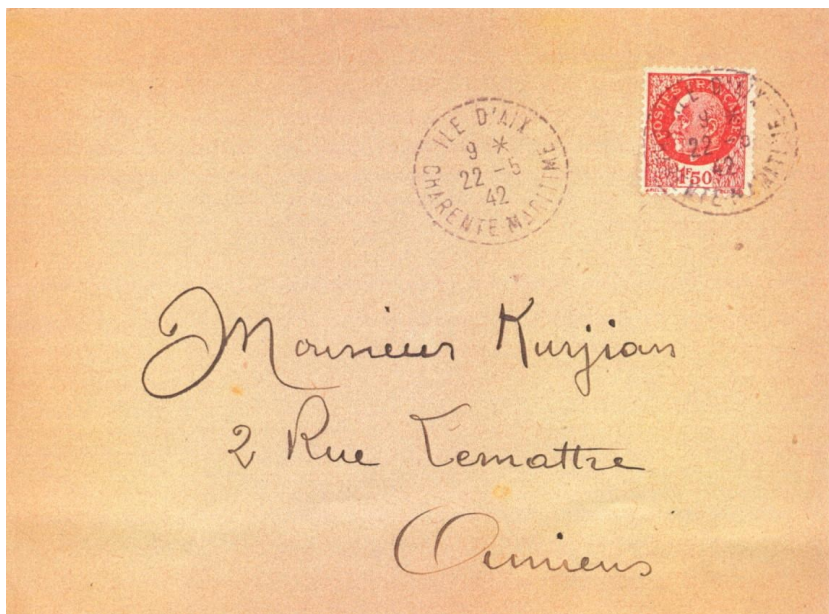 ILE D'AIX
9 *
22 - 5
42
CHARENTE MARITIME
POSTES FRANÇAISES
1F50
22
42
Monsieur Kurjian
2 Rue Lemattre
Amiens